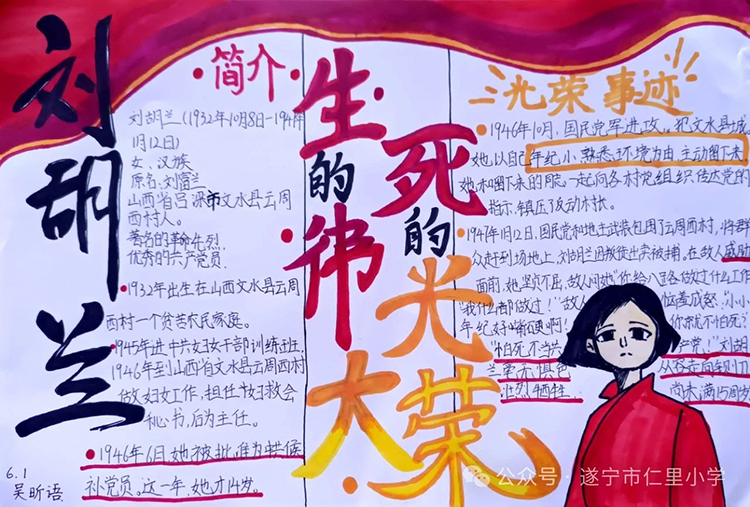 刘胡兰
简介
刘胡兰(1932年10月8日-1947年
1月12日)
女、汉族
原名:刘富兰
山西省吕梁市文水县云周
西村人。
著名的革命先烈,
优秀的共产党员.
1932年出生在山西文水县云周
西村一个贫苦农民家庭。
1945年进中共妇女干部训练班.
1946年到山西省文水县云周西村
做妇女工作,担任妇救会
秘书,后为主任。
1946年6月她被批准为中共候
补党员。这一年,她才14岁。
6.1
吴昕语
生的伟大
死的光荣
光荣事迹
1946年10月,国民党军进攻。犯文水县城
她以自己年纪小、熟悉环境为由主动留下来。
她和留下来的同志一起向各村党组织传达党的
指示,镇压了反动村长。
1947年1月12日,国民党和地主武装包围了云周西村,将群
众赶到场地上,刘胡兰因叛徒出卖被捕。在敌人威胁
面前,她坚贞不屈,敌人问她"你给八路做过什么工作
"我什么都做过!"敌人 恼羞成怒,"小小
年纪好嘴硬啊! 你就不怕死?
"怕死不当共 产党!"刘胡
兰毫无惧色 从容走向铡刀
壮烈牺牲 尚未满15周岁
公众号·遂宁市仁里小学